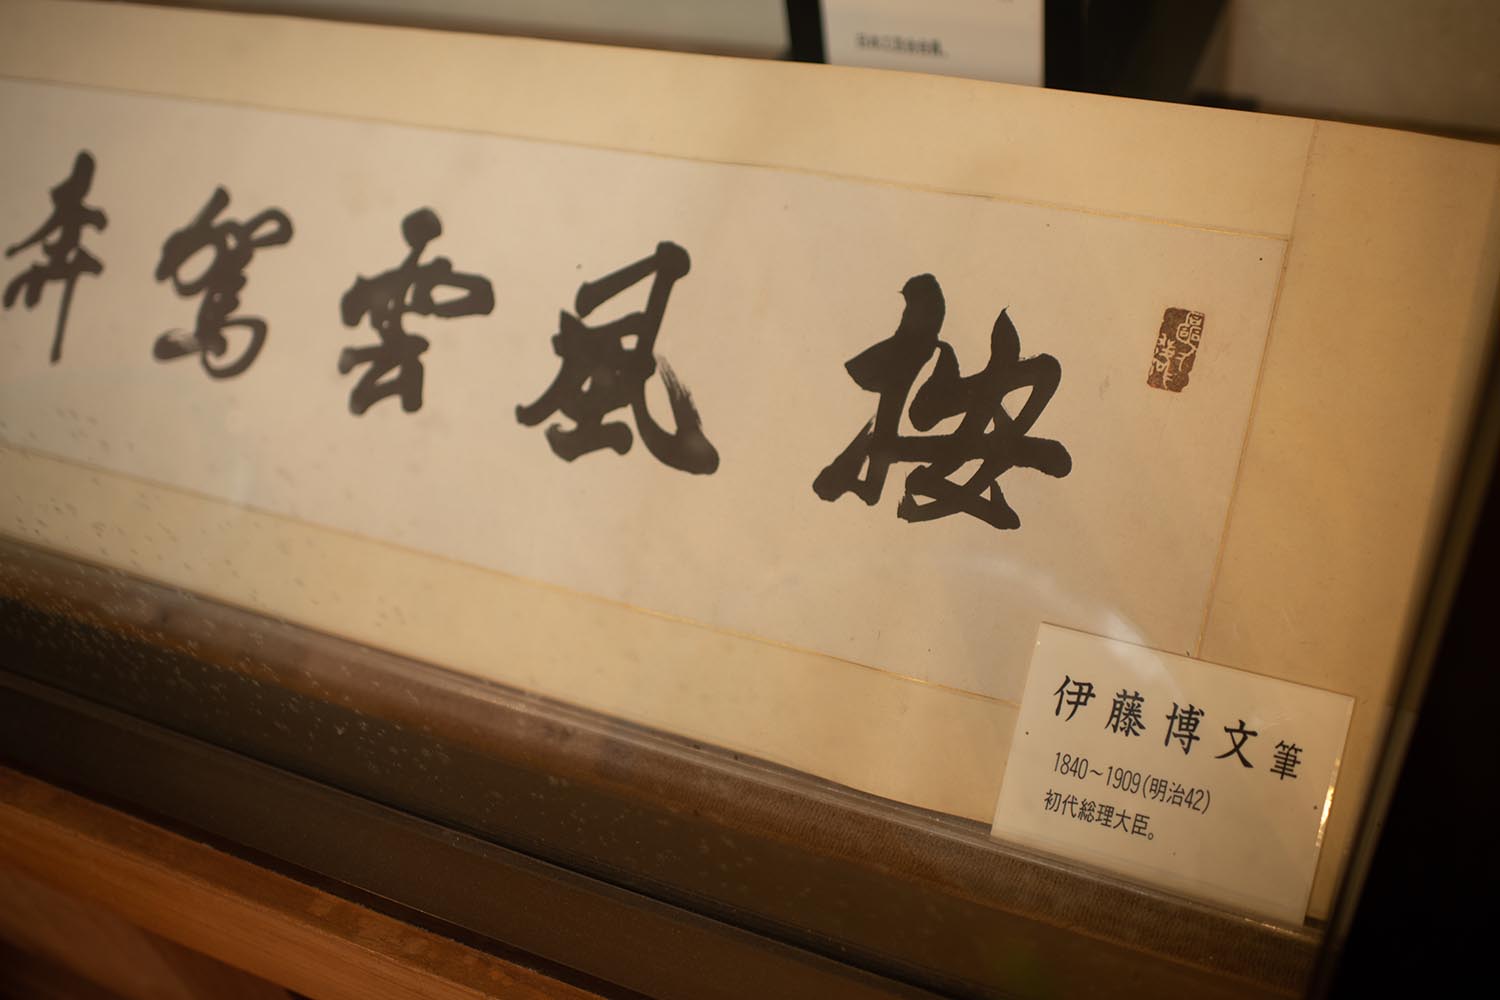 按風雲駕奔
伊藤博文筆
1840～1909(明治42)
初代総理大臣。